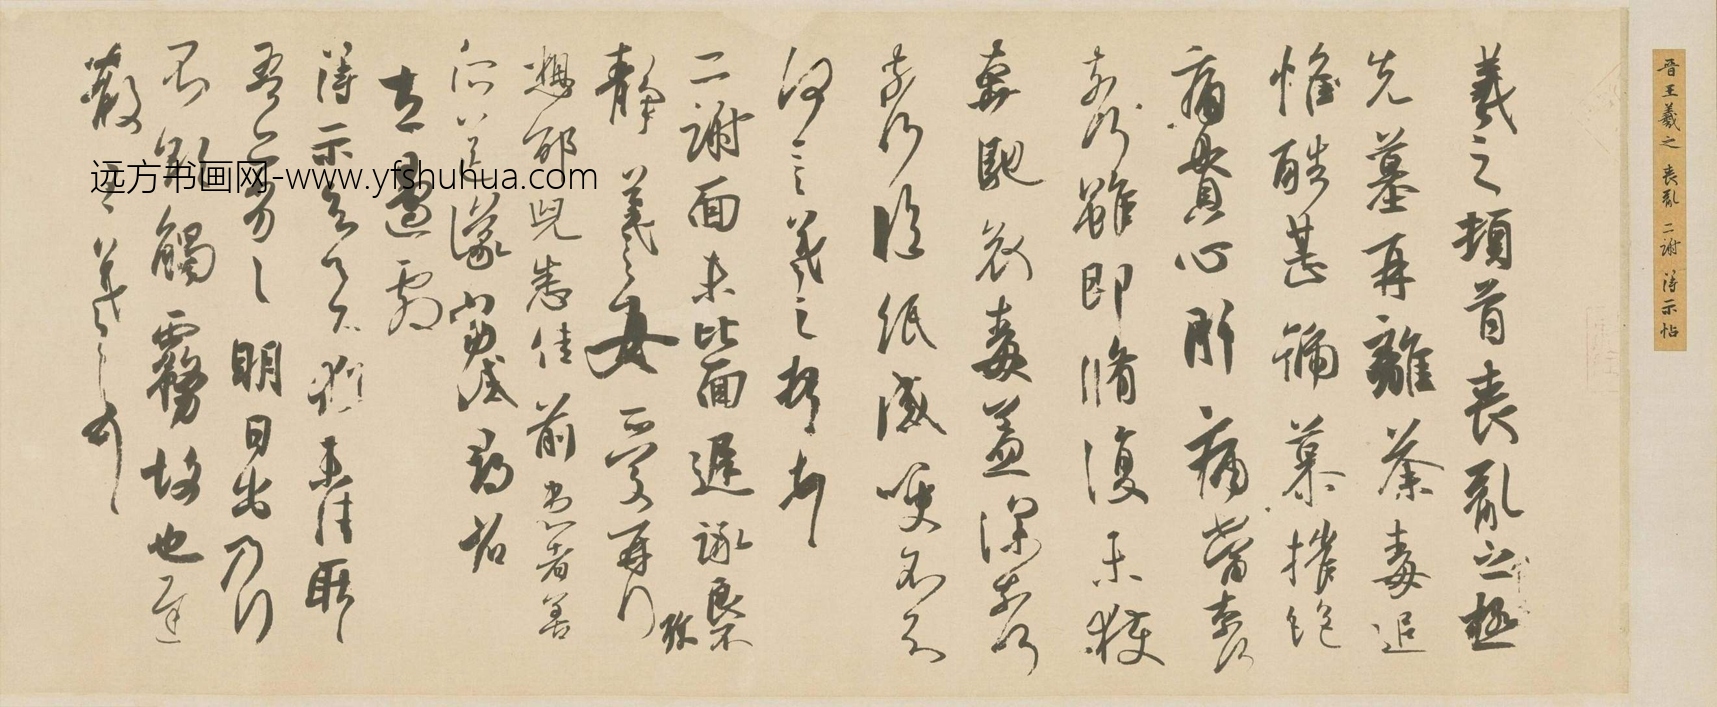 晋王羲之 丧乱 二谢 得示帖
羲之頓首喪亂之極
先墓再離荼毒追
惟酷甚號慕摧絶
痛貫心肝痛當奈何
奈何雖即脩復未獲
奔馳哀毒益深奈何
奈何臨紙感哽不知
何言羲之頓首
二謝面未比面遲詠良不
静羲之女愛再拜
想邵兒悉佳前患者善
所送議當試尋省
左邊劇
得示知足下猶未佳耿耿
吾亦劣劣明日出乃行
不欲觸霧故也遲
散王羲之頓首
远方书画网-www.yfshuhua.com